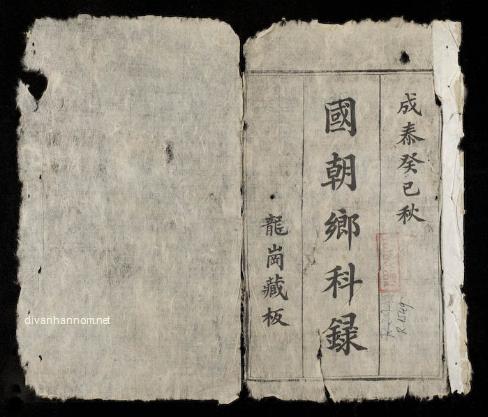 成泰癸巳秋
國朝鄉科録
龍崗藏板
R.1549
divanhannom.net